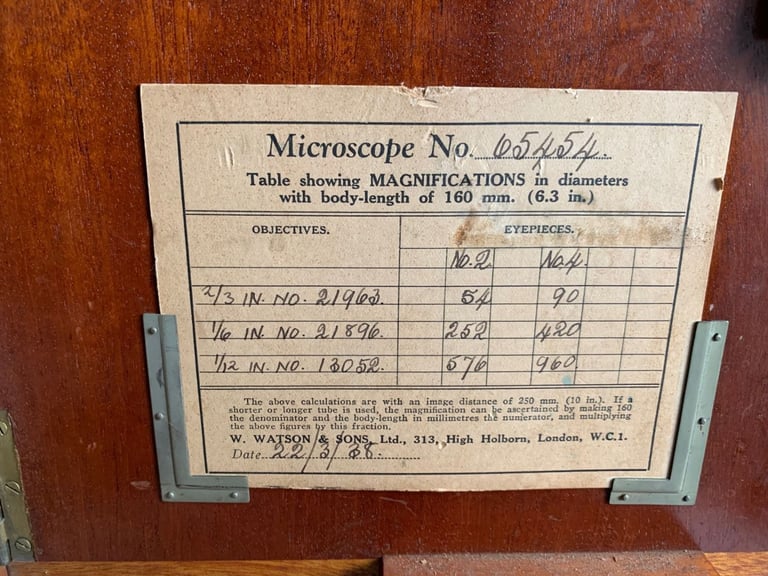 Microscope No. 65454.
Table showing MAGNIFICATIONS in diameters
with body-length of 160 mm. (6.3 in.)
OBJECTIVES. EYEPIECES.
No.2 No.4
2/3 IN. NO. 21963. 54 90
1/6 IN. NO. 21896. 252 420
1/12 IN. NO. 13052. 576 960.
The above calculations are with an image distance of 250 mm. (10 in.). If a
shorter or longer tube is used, the magnification can be ascertained by making 160
the denominator and the body-length in millimetres the numerator, and multiplying
the above figures by this fraction.
W. WATSON & SONS, Ltd., 313, High Holborn, London, W.C.1.
Date 22/3/38.